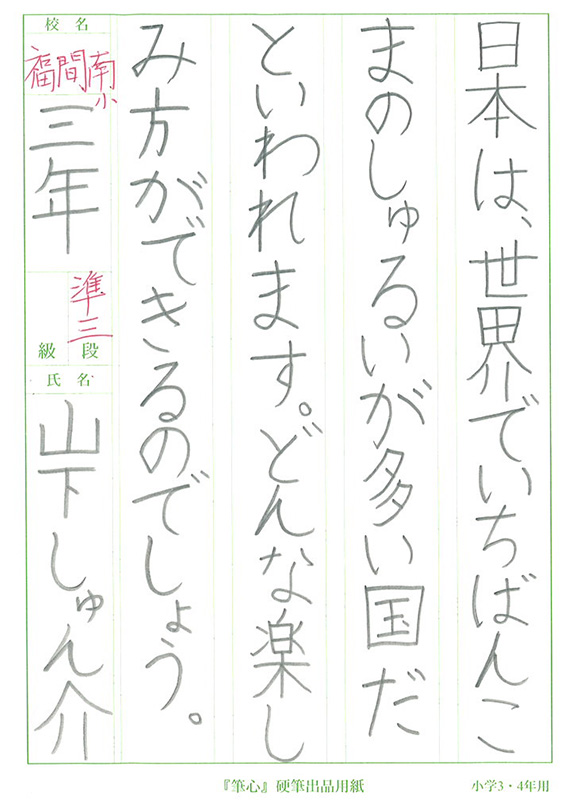 日本は、世界でいちばんこ
まのしゅるいが多い国だ
といわれます。どんな楽し
み方ができるのでしょう。
校名
福間南小
三年
準三
段
級
氏名
山下しゅん介
『筆心』硬筆出品用紙
小学3・4年用